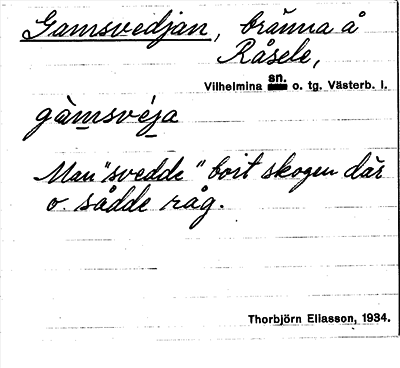 Gamsvedjan, bränna å
Råsele,
Vilhelmina sn. o. tg. Västerb. l.
gàmsvéja
Man "svedde" bort skogen där
o. sådde råg.
Thorbjörn Eliasson, 1934.